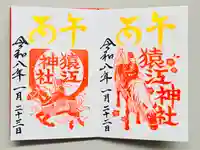 丙午
猿江神社
令和八年一月二十三日
丙午
猿江神社
令和八年一月二十三日